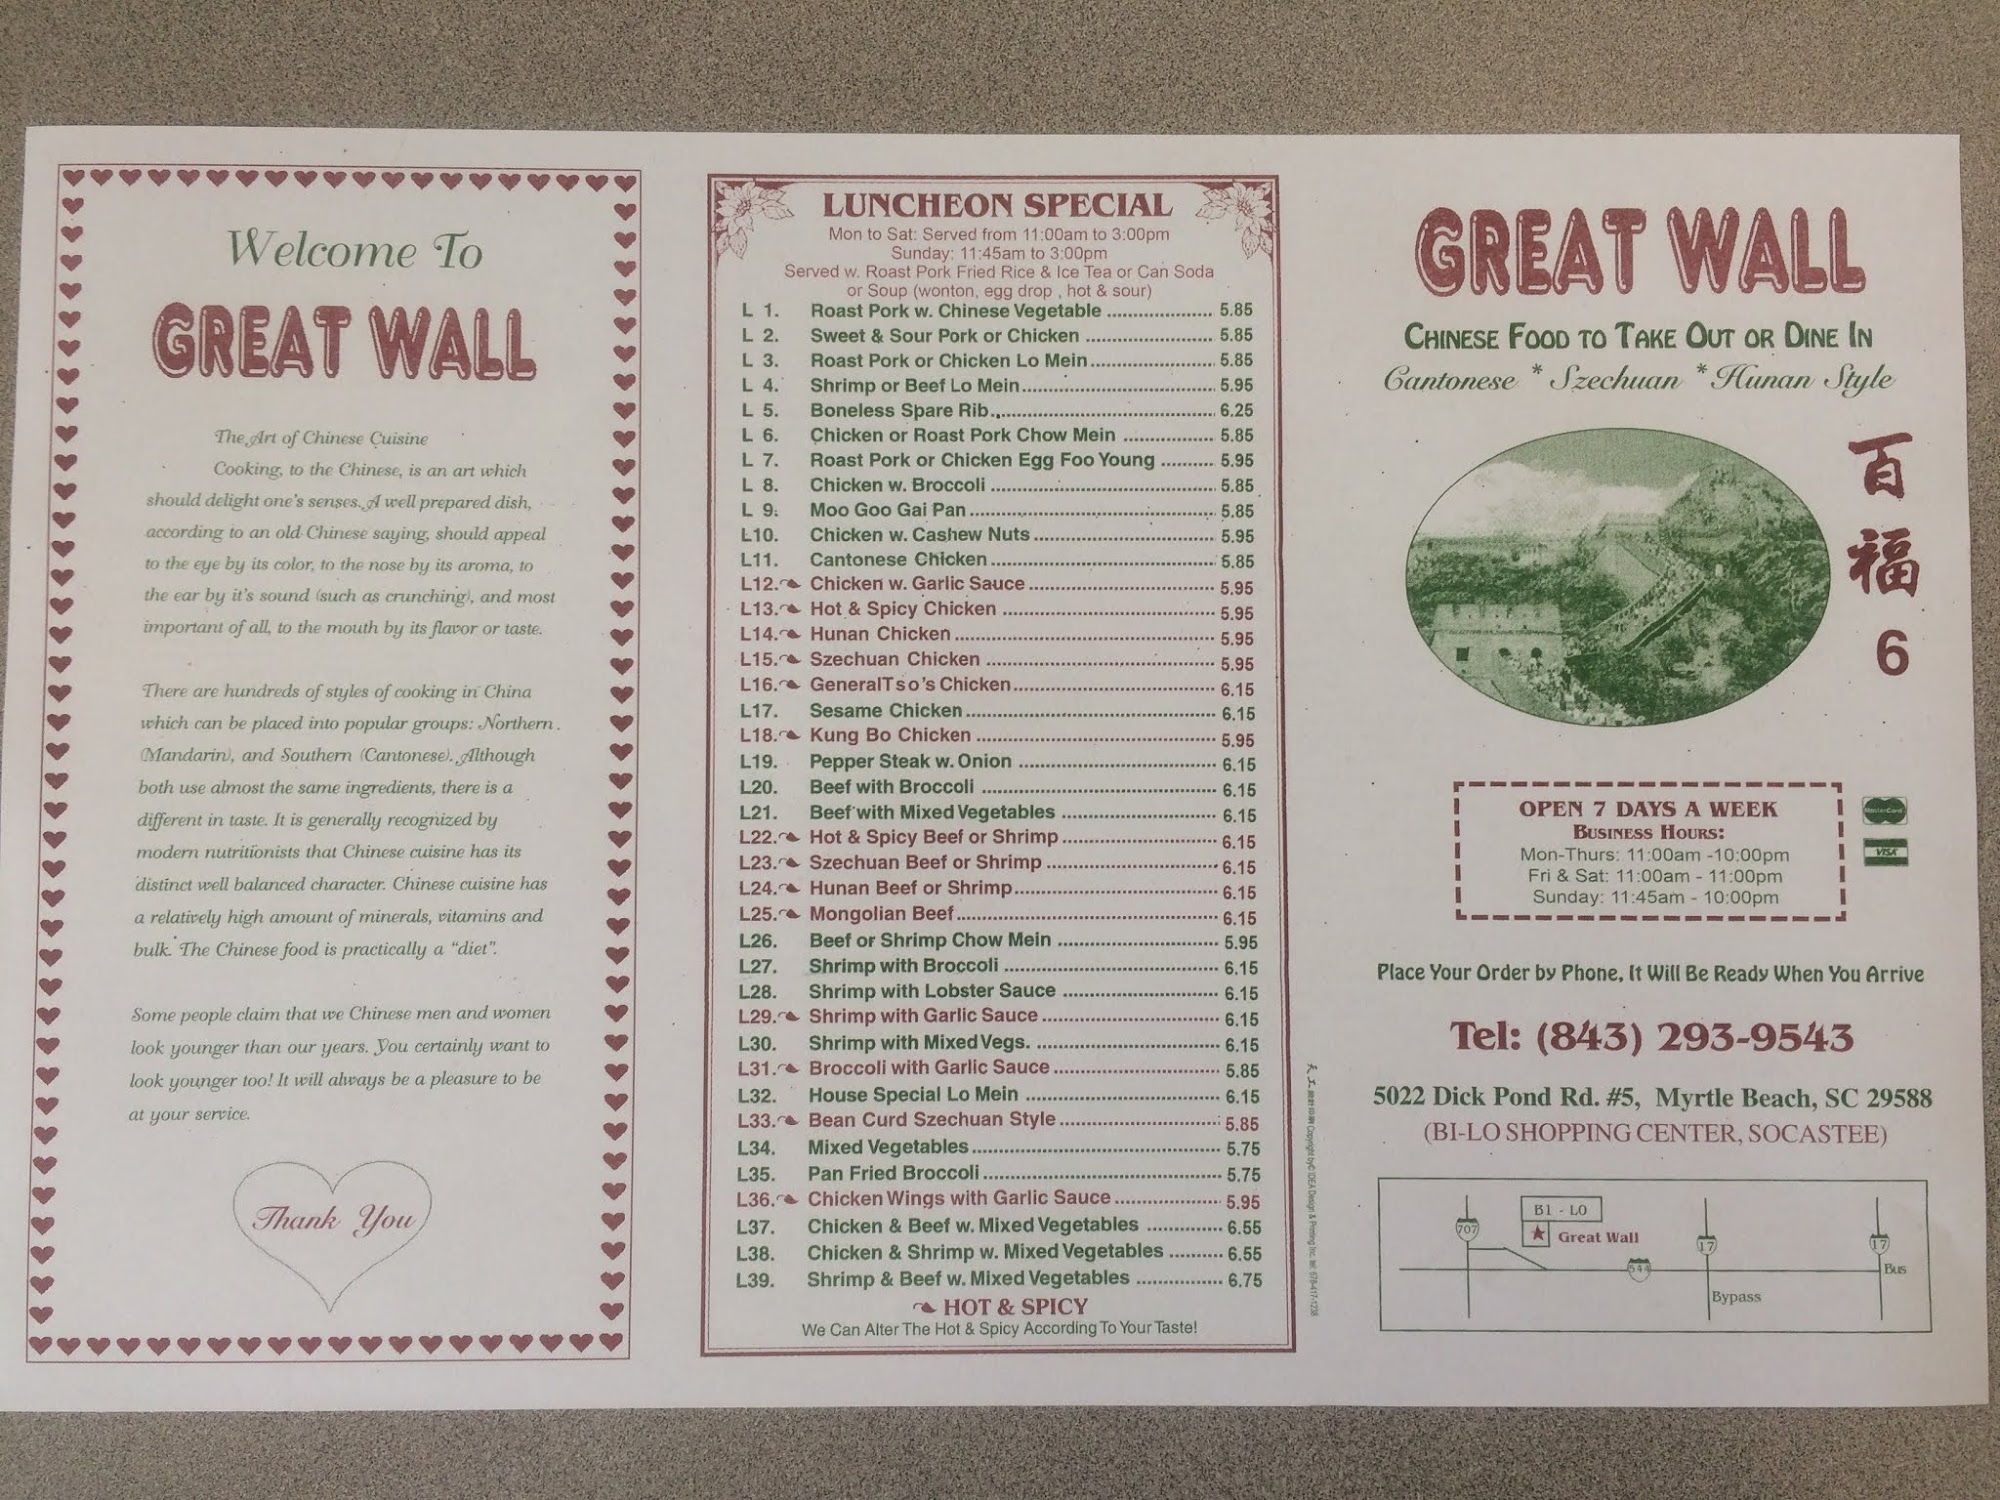 Welcome To
GREAT WALL
The Art of Chinese Cuisine
Cooking, to the Chinese, is an art which
should delight one's senses. A well prepared dish,
according to an old Chinese saying, should appeal
to the eye by its color, to the nose by its aroma, to
the ear by it's sound (such as crunching), and most
important of all, to the mouth by its flavor or taste.
There are hundreds of styles of cooking in China
which can be placed into popular groups: Northern
(Mandarin), and Southern (Cantonese). Although
both use almost the same ingredients, there is a
different in taste. It is generally recognized by
modern nutritionists that Chinese cuisine has its
distinct well balanced character. Chinese cuisine has
a relatively high amount of minerals, vitamins and
bulk. The Chinese food is practically a "diet".
Some people claim that we Chinese men and women
look younger than our years. You certainly want to
look younger too! It will always be a pleasure to be
at your service.
Thank You
LUNCHEON SPECIAL
Mon to Sat: Served from 11:00am to 3:00pm
Sunday: 11:45am to 3:00pm
Served w. Roast Pork Fried Rice & Ice Tea or Can Soda
or Soup (wonton, egg drop , hot & sour)
L 1. Roast Pork w. Chinese Vegetable 5.85
L 2. Sweet & Sour Pork or Chicken 5.85
L 3. Roast Pork or Chicken Lo Mein 5.85
L 4. Shrimp or Beef Lo Mein 5.95
L 5. Boneless Spare Rib 6.25
L 6. Chicken or Roast Pork Chow Mein 5.85
L 7. Roast Pork or Chicken Egg Foo Young 5.95
L 8. Chicken w. Broccoli 5.85
L 9. Moo Goo Gai Pan 5.85
L10. Chicken w. Cashew Nuts 5.95
L11. Cantonese Chicken 5.85
L12. Chicken w. Garlic Sauce 5.95
L13. Hot & Spicy Chicken 5.95
L14. Hunan Chicken 5.95
L15. Szechuan Chicken 5.95
L16. General Tso's Chicken 6.15
L17. Sesame Chicken 6.15
L18. Kung Bo Chicken 5.95
L19. Pepper Steak w. Onion 6.15
L20. Beef with Broccoli 6.15
L21. Beef with Mixed Vegetables 6.15
L22. Hot & Spicy Beef or Shrimp 6.15
L23. Szechuan Beef or Shrimp 6.15
L24. Hunan Beef or Shrimp 6.15
L25. Mongolian Beef 6.15
L26. Beef or Shrimp Chow Mein 5.95
L27. Shrimp with Broccoli 6.15
L28. Shrimp with Lobster Sauce 6.15
L29. Shrimp with Garlic Sauce 6.15
L30. Shrimp with Mixed Vegs. 6.15
L31. Broccoli with Garlic Sauce 5.85
L32. House Special Lo Mein 6.15
L33. Bean Curd Szechuan Style 5.85
L34. Mixed Vegetables 5.75
L35. Pan Fried Broccoli 5.75
L36. Chicken Wings with Garlic Sauce 5.95
L37. Chicken & Beef w. Mixed Vegetables 6.55
L38. Chicken & Shrimp w. Mixed Vegetables 6.55
L39. Shrimp & Beef w. Mixed Vegetables 6.75
HOT & SPICY
We Can Alter The Hot & Spicy According To Your Taste!
Copyright by© IDEA Design & Printing Inc. tel: 678-417-1238
GREAT WALL
CHINESE FOOD TO TAKE OUT OR DINE IN
Cantonese * Szechuan * Hunan Style
百福6
OPEN 7 DAYS A WEEK
BUSINESS HOURS:
Mon-Thurs: 11:00am -10:00pm
Fri & Sat: 11:00am - 11:00pm
Sunday: 11:45am - 10:00pm
MasterCard
VISA
Place Your Order by Phone, It Will Be Ready When You Arrive
Tel: (843) 293-9543
5022 Dick Pond Rd. #5, Myrtle Beach, SC 29588
(BI-LO SHOPPING CENTER, SOCASTEE)
B1 - LO
707
Great Wall
17
17
544
Bus
Bypass